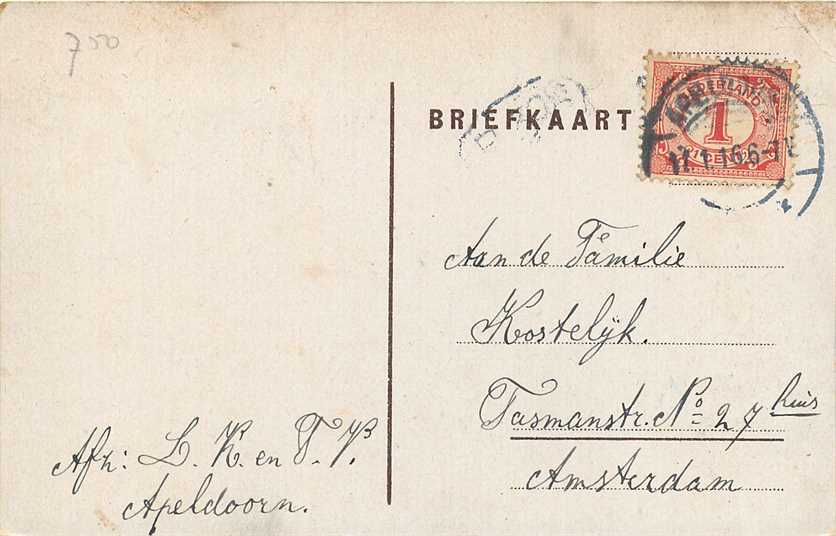 700
BRIEFKAART
NEDERLAND
1
1 CENT
17.1.16 6-7
Aan de Familie
Kostelijk.
Tasmanstr. No 27 huis
Amsterdam
Afz: L. K. en T. V.
Apeldoorn.